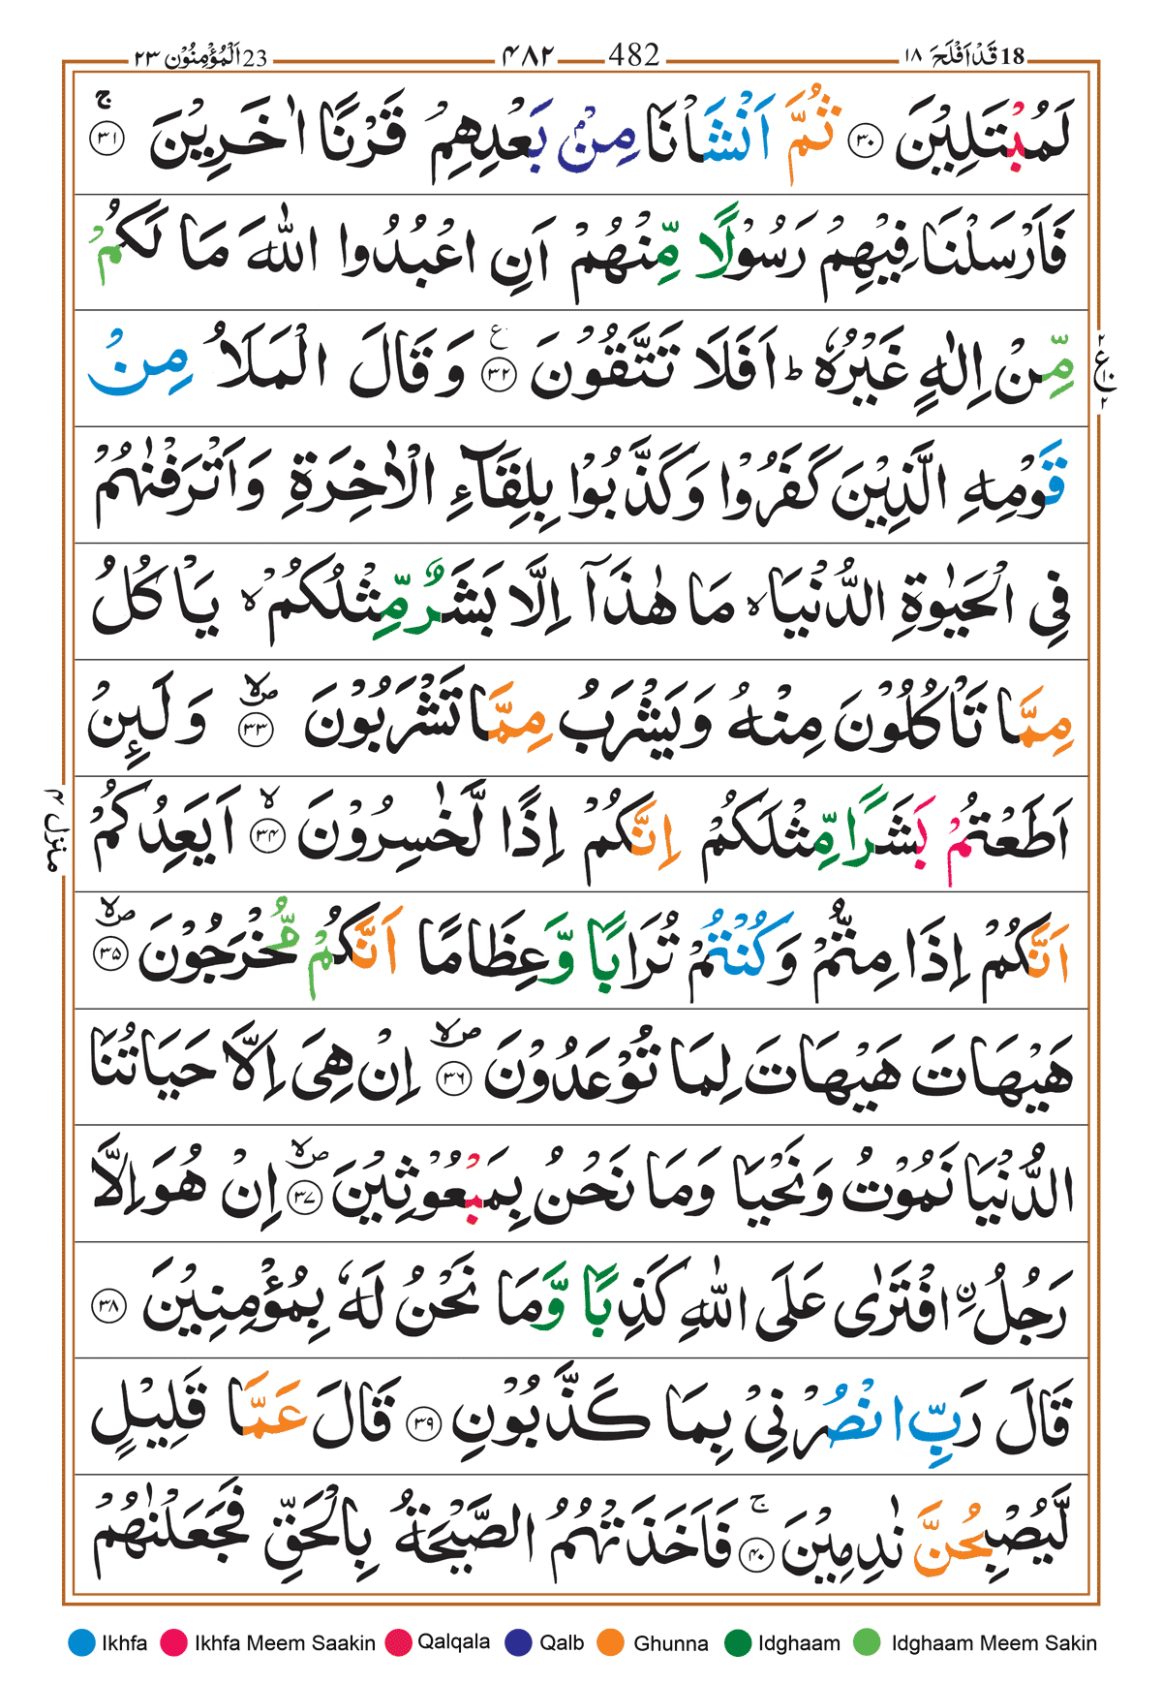 18 قَدْ اَفْلَحَ ١٨ 482 ٤٨٢ 23 اَلْمُؤْمِنُوْن ٢٣
لَمُبْتَلِيْنَ ﴿۳۰﴾ ثُمَّ اَنْشَاْنَا مِنْۢ بَعْدِهِمْ قَرْنًا اٰخَرِيْنَ ۚ ﴿۳۱﴾
فَاَرْسَلْنَا فِيْهِمْ رَسُوْلًا مِّنْهُمْ اَنِ اعْبُدُوا اللّٰهَ مَا لَكُمْ
مِّنْ اِلٰهٍ غَيْرُهٗ ؕ اَفَلَا تَتَّقُوْنَ ﴿۳۲﴾ ع وَ قَالَ الْمَلَاُ مِنْ
۲ ع ۱۰ ۲
قَوْمِهِ الَّذِيْنَ كَفَرُوْا وَكَذَّبُوْا بِلِقَآءِ الْاٰخِرَةِ وَاَتْرَفْنٰهُمْ
فِى الْحَيٰوةِ الدُّنْيَا ۙ مَا هٰذَاۤ اِلَّا بَشَرٌ مِّثْلُكُمْ ۙ يَاْكُلُ
مِمَّا تَاْكُلُوْنَ مِنْهُ وَيَشْرَبُ مِمَّا تَشْرَبُوْنَ ۙ ﴿۳۳﴾ وَلَئِنْ
اَطَعْتُمْ بَشَرًا مِّثْلَكُمْ اِنَّكُمْ اِذًا لَّخٰسِرُوْنَ ۙ ﴿۳۴﴾ اَيَعِدُكُمْ
منزل ۴
اَنَّكُمْ اِذَا مِتُّمْ وَكُنْتُمْ تُرَابًا وَّعِظَامًا اَنَّكُمْ مُّخْرَجُوْنَ ۙ ﴿۳۵﴾
هَيْهَاتَ هَيْهَاتَ لِمَا تُوْعَدُوْنَ ۙ ﴿۳۶﴾ اِنْ هِىَ اِلَّا حَيَاتُنَا
الدُّنْيَا نَمُوْتُ وَنَحْيَا وَمَا نَحْنُ بِمَبْعُوْثِيْنَ ۙ ﴿۳۷﴾ اِنْ هُوَ اِلَّا
رَجُلُ ۨافْتَرٰى عَلَى اللّٰهِ كَذِبًا وَّمَا نَحْنُ لَهٗ بِمُؤْمِنِيْنَ ﴿۳۸﴾
قَالَ رَبِّ انْصُرْنِىْ بِمَا كَذَّبُوْنِ ﴿۳۹﴾ قَالَ عَمَّا قَلِيْلٍ
لَّيُصْبِحُنَّ نٰدِمِيْنَ ۚ ﴿۴۰﴾ فَاَخَذَتْهُمُ الصَّيْحَةُ بِالْحَقِّ فَجَعَلْنٰهُمْ
Ikhfa Ikhfa Meem Saakin Qalqala Qalb Ghunna Idghaam Idghaam Meem Sakin